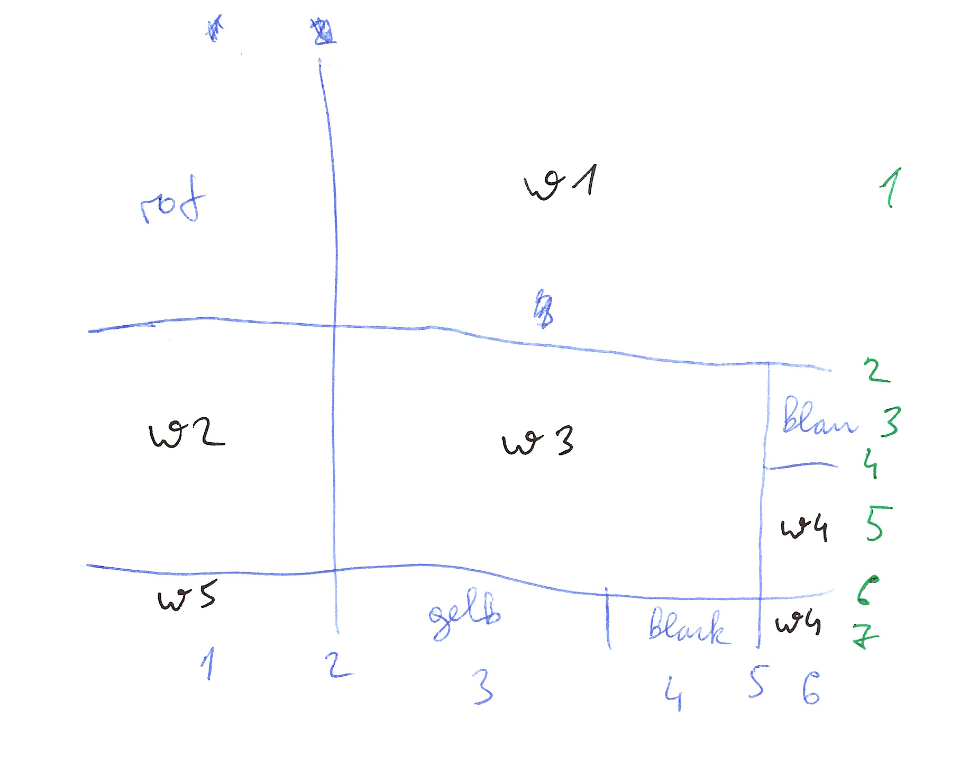 rot w1 1
2
w2 w3 Blau 3
4
w4 5
w5 gelb black w4 6
7
1 2 3 4 5 6